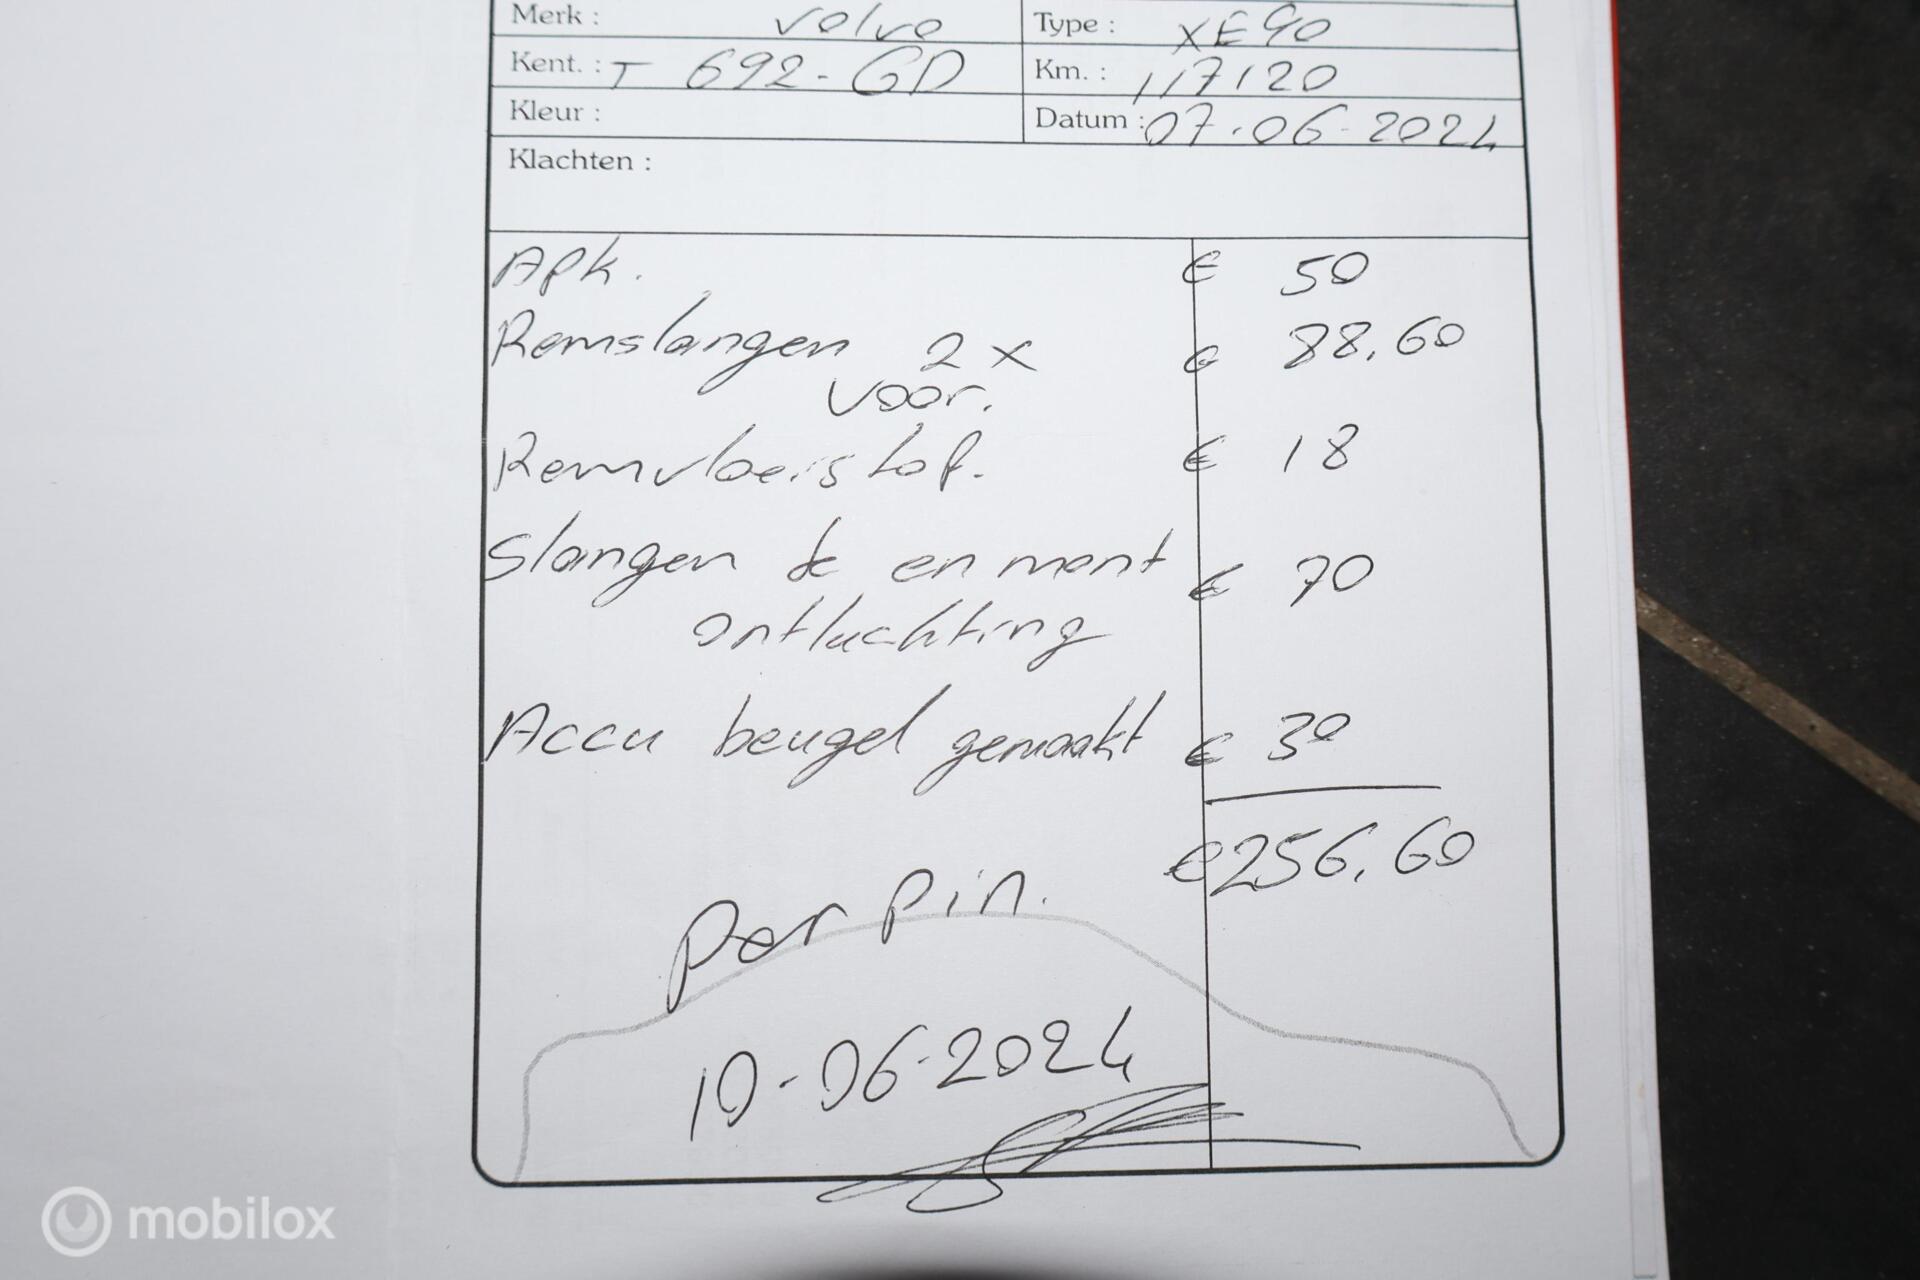 Merk : Volvo Type : XE90
Kent. : T 692-GD Km. : 117120
Kleur : Datum : 07.06-2024
Klachten :
Apk. € 50
Remslangen 2x € 88,60
voor.
Remvloeistof. € 18
Slangen de en mont € 70
ontluchting
Accu beugel gemaakt € 30
€ 256,60
Per pin.
10-06-2024
mobilox